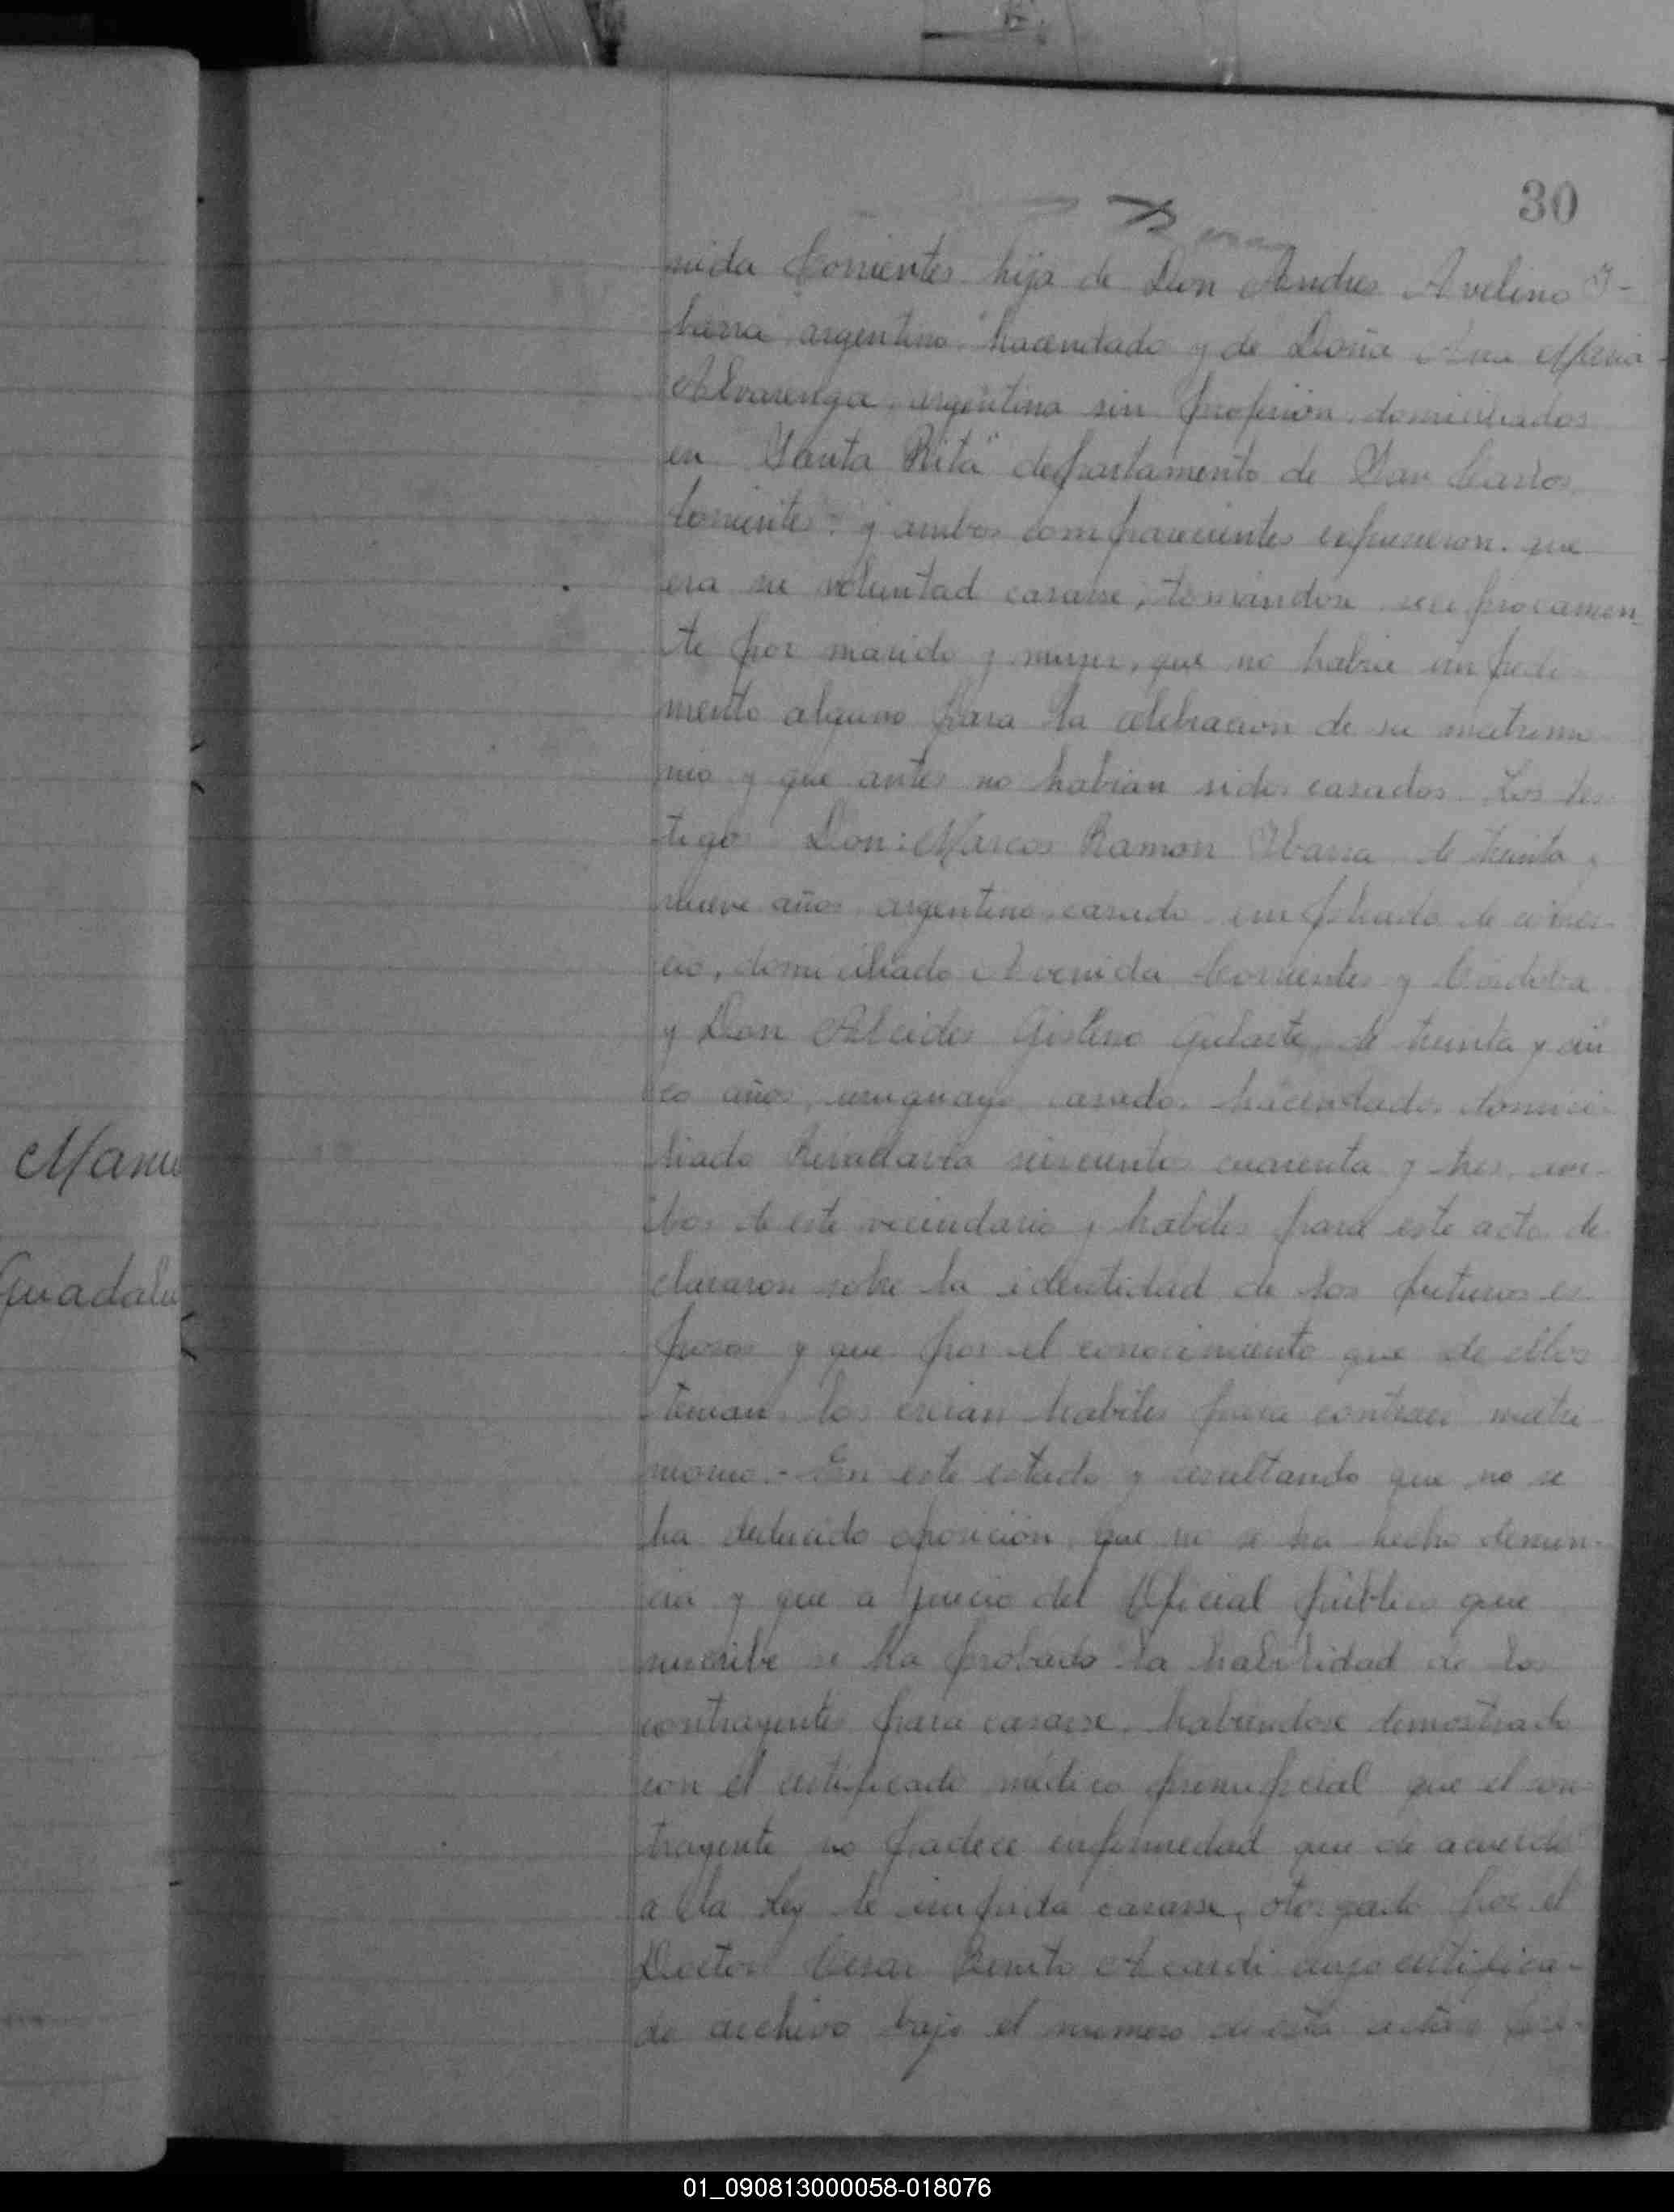 30
nida Corrientes hija de Don Andres Avelino I-
barra argentino hacendado y de Doña Ana Maria
Alvarenga, argentina sin profesion, domiciliados
en "Santa Rita" departamento de San Carlos
Corrientes: y ambos comparecientes expusieron: que
era su voluntad casarse, tomándose reciprocamen-
te por marido y mujer, que no habia impedi-
mento alguno para la celebracion de su matrimo-
nio y que antes no habian sidos casados. Los tes-
tigos Don: Marcos Ramon Ibarra de treinta y
nueve años, argentino, casado empleado de comer-
cio, domiciliado Avenida Corrientes y Córdoba
y Don Alcides Gisleno Gularte, de treinta y cin
co años, uruguayo casado, hacendado domici-
liado Rivadavia seiscientos cuarenta y tres, am-
bos de este vecindario y habiles para este acto de-
clararon sobre la identidad de los futuros es-
posos y que por el conocimiento que de ellos
tenian, los creian habiles para contraer matri-
monio.- En este estado y resultando que no se
ha deducido oposición, que no se ha hecho denun-
cia y que a juicio del Oficial público que
suscribe se ha probado la habilidad de los
contrayentes para casarse, habiendose demostrado
con el certificado médico prenupcial que el con
trayente no padece enfermedad que de acuerdo
a la Ley le impida casarse, otorgado por el
Doctor Cesar Benito Acardi cuyo certifica-
do archivo bajo el numero de esta acta
Manu
Guadalu
01_090813000058-018076